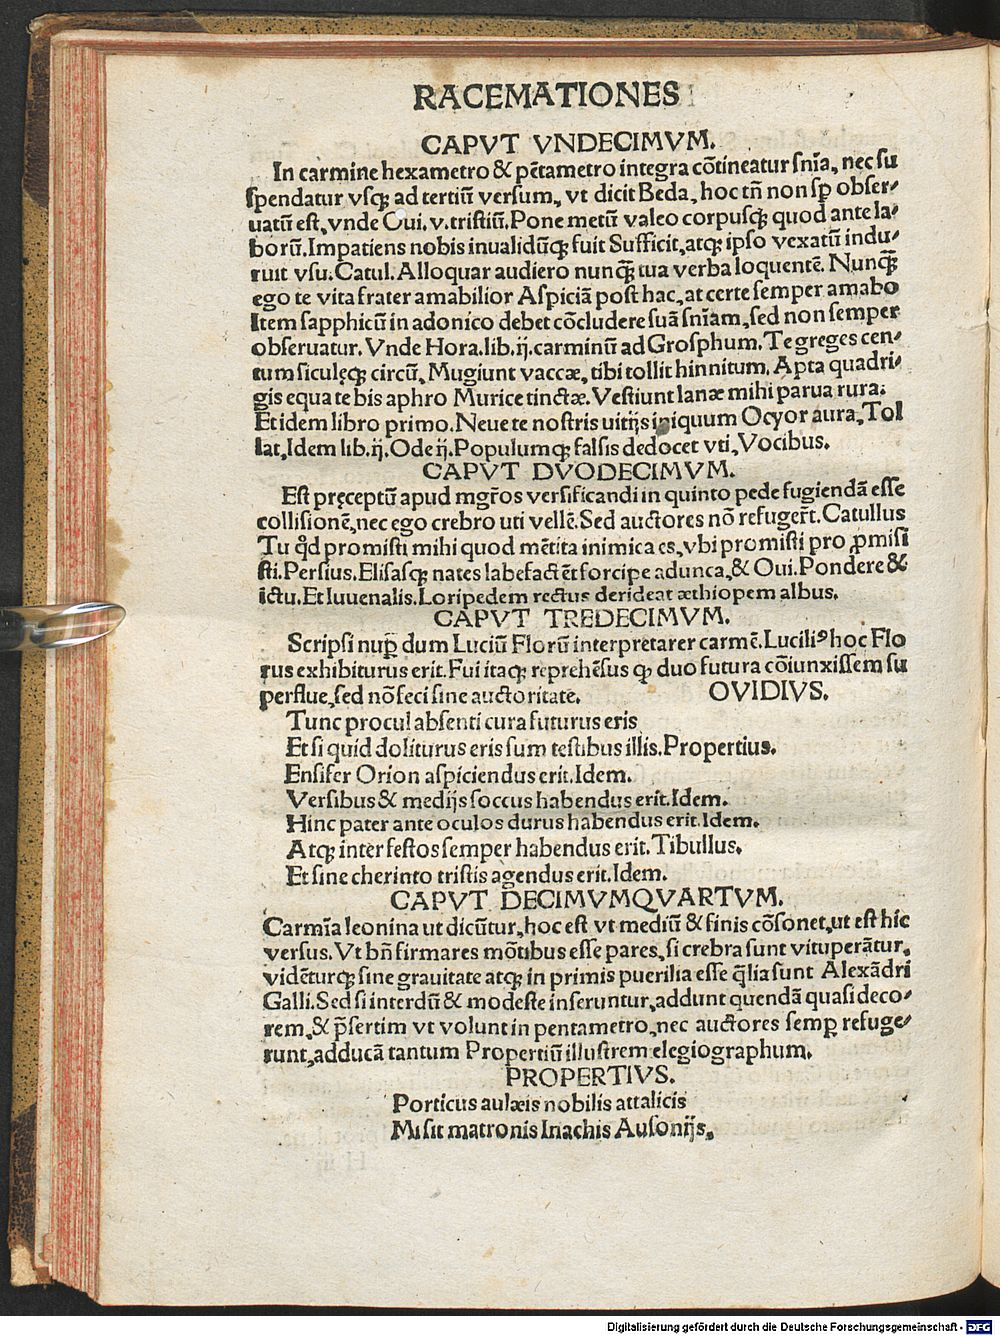 RACEMATIONES
CAPVT VNDECIMVM.
In carmine hexametro & pẽtametro integra cõtineatur sñia, nec su
spendatur vsq; ad tertiũ versum, vt dicit Beda, hoc tñ non sp̱ obser-
uatũ est, vnde Oui. v. tristiũ. Pone metũ valeo corpusq; quod ante la-
borũ. Impatiens nobis inualidũq; fuit Sufficit, atq; ipso vexatũ indu-
ruit vsu. Catul. Alloquar audiero nunq̃ tua verba loquentẽ. Nunq̃
ego te vita frater amabilior Aspiciã post hac, at certe semper amabo
Item sapphicũ in adonico debet cõcludere suã sñiam, sed non semper
obseruatur. Vnde Hora. lib. ij. carminũ ad Grosphum. Te greges cen-
tum siculęq; circũ, Mugiunt vaccæ, tibi tollit hinnitum. Apta quadri-
gis equa te bis aphro Murice tinctæ. Vestiunt lanæ mihi parua rura.
Et idem libro primo. Neue te nostris uitijs iniquum Ocyor aura, Tol
lat, Idem lib. ij. Ode ij. Populumq; falsis dedocet vti, Vocibus.
CAPVT DVODECIMVM.
Est pręceptũ apud mgr̃os versificandi in quinto pede fugiendã esse
collisionẽ, nec ego crebro uti vellẽ. Sed auctores nõ refuger̃t. Catullus
Tu qđ promisti mihi quod mẽtita inimica es, vbi promisti pro ꝓmisi
sti. Persius. Elisasq; nates labefactẽt forcipe adunca, & Oui. Pondere &
ictu. Et Iuuenalis. Loripedem rectus derideat æthiopem albus.
CAPVT TREDECIMVM.
Scripsi nup̱ dum Luciũ Florũ interpretarer carmẽ. Luciliꝰ hoc Flo
rus exhibiturus erit. Fui itaq; reprehẽsus q̱ duo futura cõiunxissem su
perflue, sed nõ feci sine auctoritate. OVIDIVS.
Tunc procul absenti cura futurus eris
Et si quid doliturus eris sum testibus illis. Propertius.
Ensifer Orion aspiciendus erit. Idem.
Versibus & medijs soccus habendus erit. Idem.
Hinc pater ante oculos durus habendus erit. Idem.
Atq; inter festos semper habendus erit. Tibullus.
Et sine cherinto tristis agendus erit. Idem.
CAPVT DECIMVMQVARTVM.
Carmĩa leonina ut dicũtur, hoc est vt mediũ & finis cõsonet, ut est hic
versus. Vt bñ firmares mõtibus esse pares, si crebra sunt vituperãtur,
vidẽturq; sine grauitate atq; in primis puerilia esse q̃lia sunt Alexãdri
Galli. Sed si interdũ & modeste inseruntur, addunt quendã quasi deco-
rem, & p̃sertim vt volunt in pentametro, nec auctores semp̱ refuge-
runt, adducã tantum Propertiũ illustrem elegiographum.
PROPERTIVS.
Porticus aulæis nobilis attalicis
Misit matronis Inachis Ausonijs.
Digitalisierung gefördert durch die Deutsche Forschungsgemeinschaft - DFG